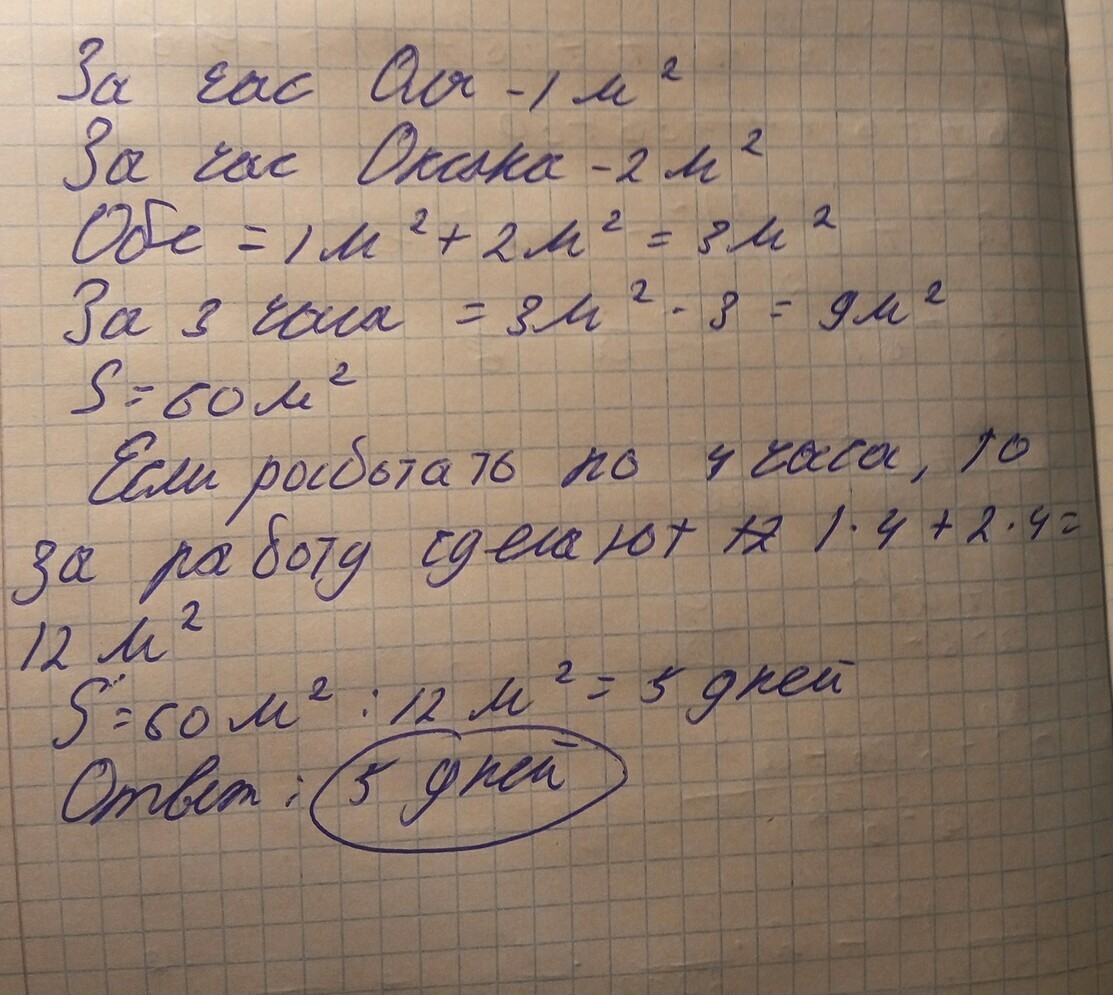 За час Оля - 1 м²
За час Оксана - 2 м²
Обе = 1 м² + 2 м² = 3 м²
За 3 часа = 3 м² · 3 = 9 м²
S = 60 м²
Если работать по 4 часа, то
за работу сделают 12 1·4 + 2·4 =
12 м²
S = 60 м² : 12 м² = 5 дней
Ответ: 5 дней